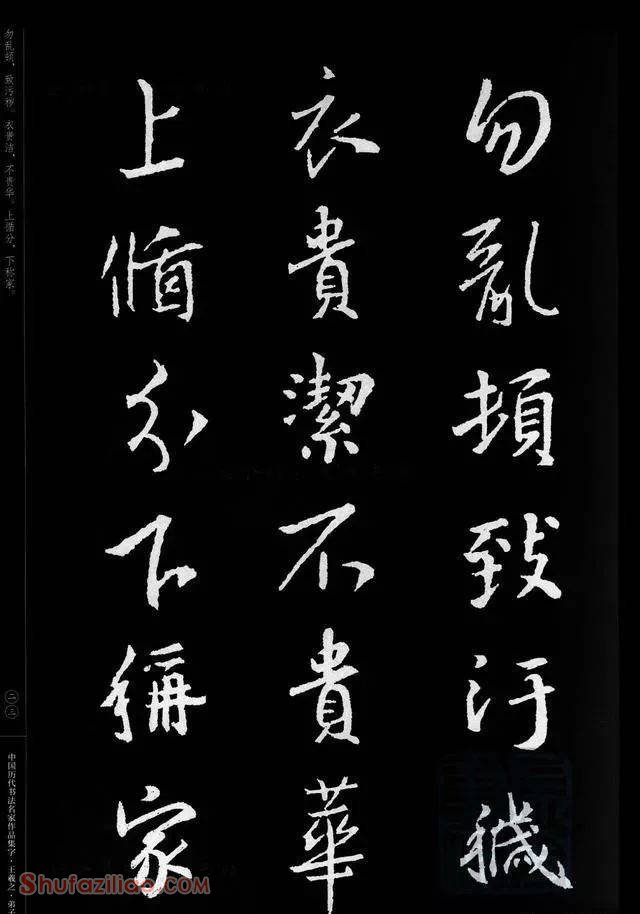 勿亂頓致汙穢
衣貴潔不貴華
上循分下稱家
勿乱顿，致污秽。衣贵洁，不贵华。上循分，下称家。
二三
中国历代书法名家作品集字·王羲之·弟子
Shufaziliao.com